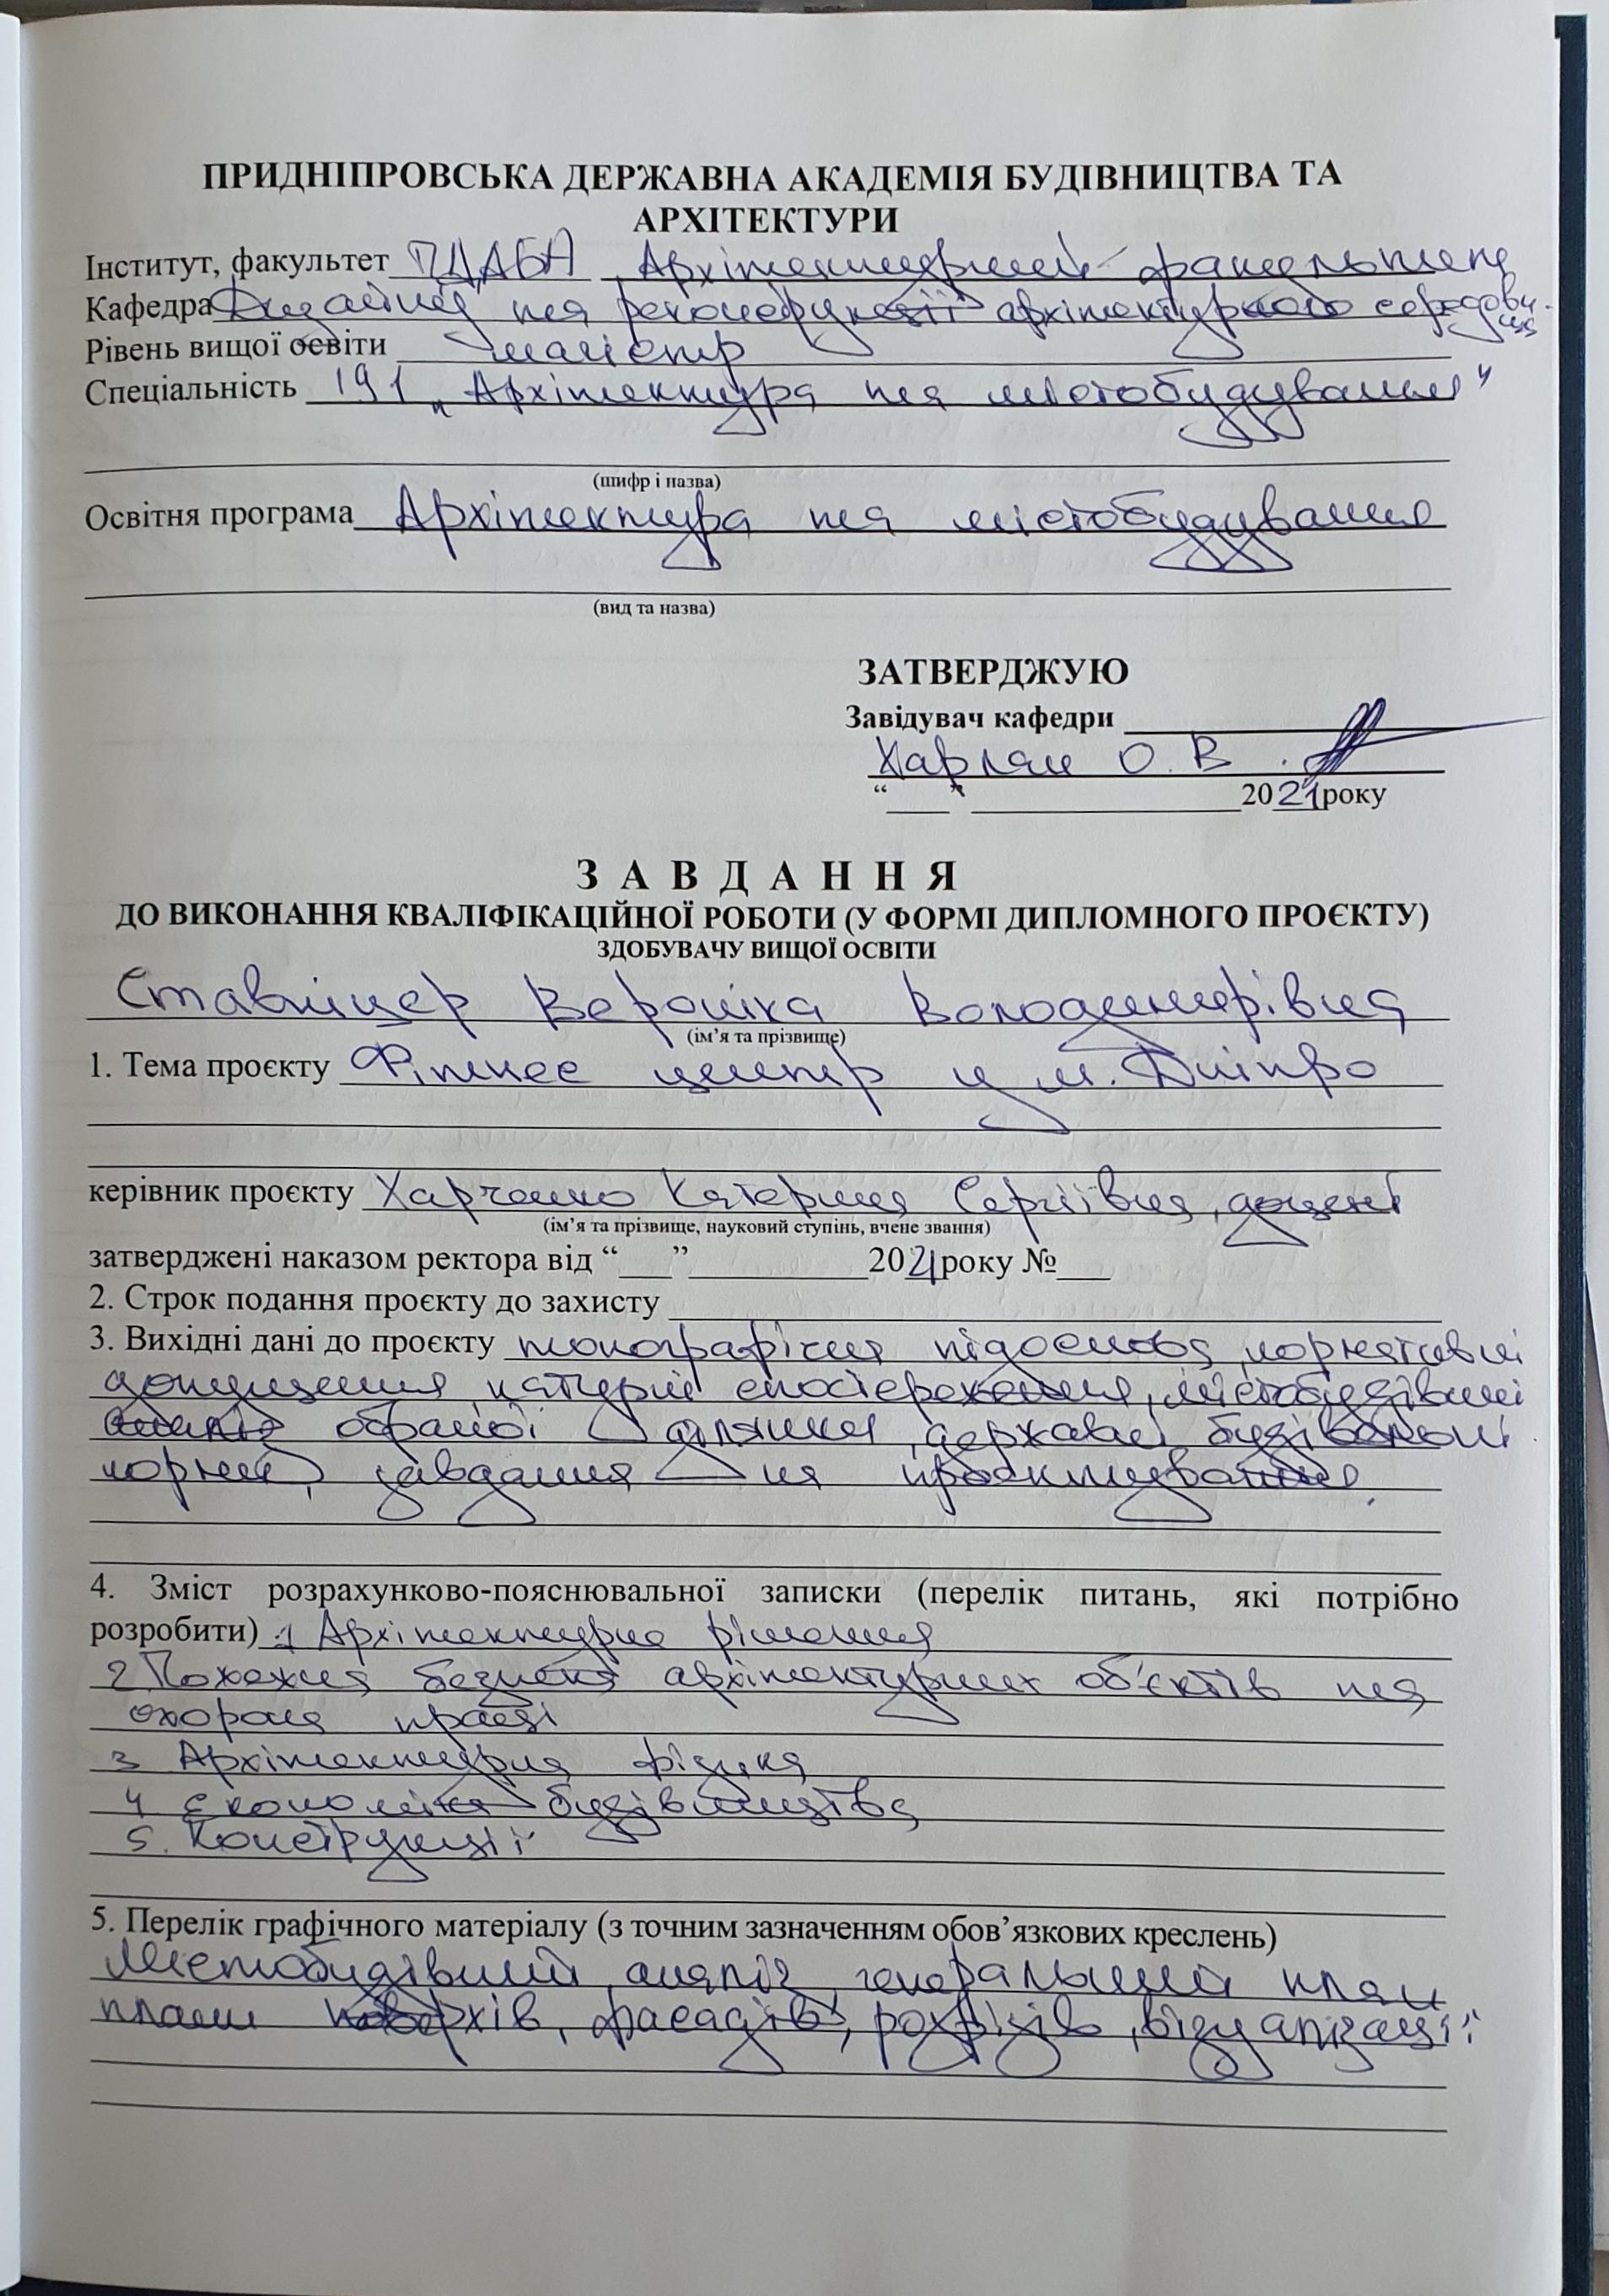 ПРИДНІПРОВСЬКА ДЕРЖАВНА АКАДЕМІЯ БУДІВНИЦТВА ТА
АРХІТЕКТУРИ
Інститут, факультет ПДАБА Архітектурний факультет
Кафедра Дизайну та реконструкції архітектурного середовища
Рівень вищої освіти магістр
Спеціальність 191 „Архітектура та містобудування“
(шифр і назва)
Освітня програма Архітектура та містобудування
(вид та назва)
ЗАТВЕРДЖУЮ
Завідувач кафедри
Харлан О. В.
“___” ___ 2021 року
З А В Д А Н Н Я
ДО ВИКОНАННЯ КВАЛІФІКАЦІЙНОЇ РОБОТИ (У ФОРМІ ДИПЛОМНОГО ПРОЄКТУ)
ЗДОБУВАЧУ ВИЩОЇ ОСВІТИ
Ставніцер Вероніка Володимирівна
(ім’я та прізвище)
1. Тема проєкту Фітнес центр у м. Дніпро
керівник проєкту Харченко Катерина Сергіївна, доцент
(ім’я та прізвище, науковий ступінь, вчене звання)
затверджені наказом ректора від “___” ___ 2021 року №___
2. Строк подання проєкту до захисту
3. Вихідні дані до проєкту топографічна підоснова, нормативні
натурні спостереження, містобудівний
аналіз обраної ділянки, державні будівельні
норми, завдання на проектування.
4. Зміст розрахунково-пояснювальної записки (перелік питань, які потрібно
розробити) 1 Архітектурне рішення
2 Пожежна безпека архітектурних об'єктів та
охорона праці
3 Архітектурна фізика
4 Економіка будівництва
5. Конструкції
5. Перелік графічного матеріалу (з точним зазначенням обов’язкових креслень)
Містобудівний аналіз, генеральний план
плани поверхів, фасадів, розрізів, візуалізації